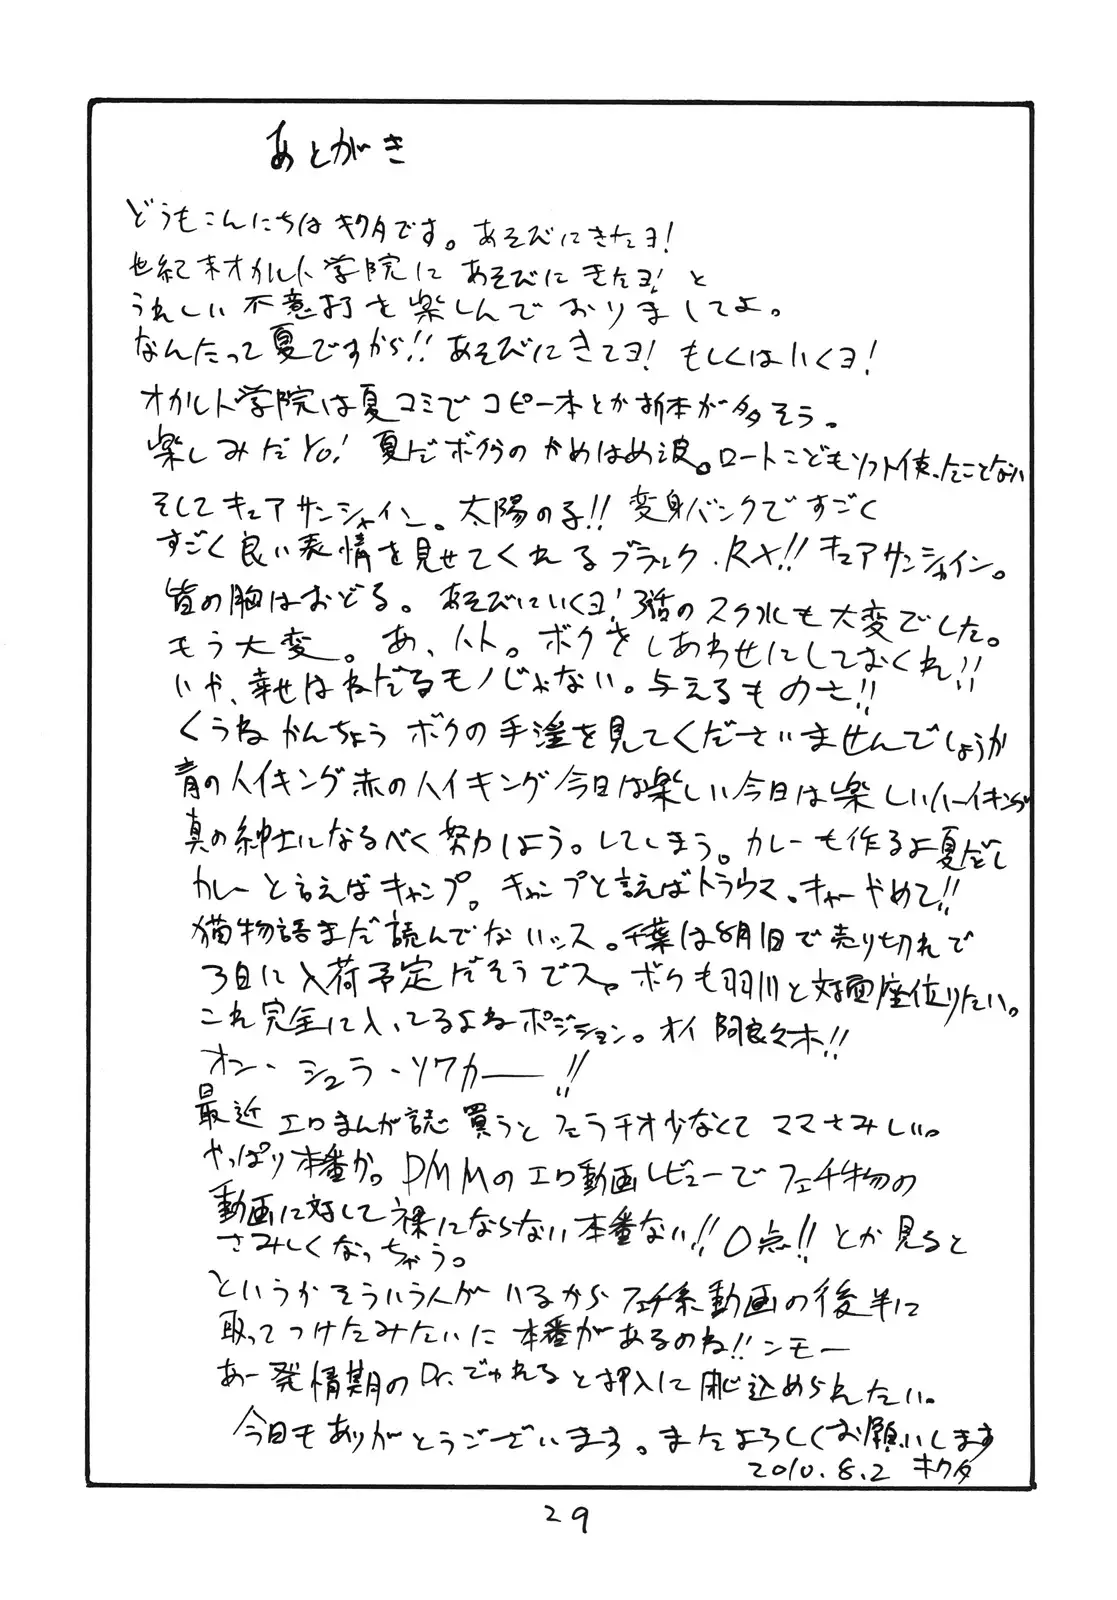 あとがき
どうもこんにちはキクタです。あそびにきたヨ!
世紀末オカルト学院にあそびにきたヨ!と
うれしい不意打を楽しんでおりましてよ。
なんたって夏ですから!!あそびにきてヨ!もしくはいくヨ!
オカルト学院は夏コミでコピー本とか折本が多そう。
楽しみだYo!夏だボクらのかめはめ波。ロートこどもソフト使ったことない
そしてキュアサンシャイン。太陽の子!!変身バンクですごく
すごく良い表情を見せてくれるブラック.RX!!キュアサンシャイン。
皆の胸はおどる。あそびにいくヨ!3話のスク水も大変でした。
もう大変。あ、ハト。ボクをしあわせにしておくれ!!
いや、幸せはねだるモノじゃない。与えるものさ!!
くうねかんちょうボクの手淫を見てくださいませんでしょうか
青のハイキング赤のハイキング今日は楽しい今日は楽しいハイキング
真の紳士になるべく努力しよう。してしまう。カレーも作るよ夏だし
カレーと言えばキャンプ。キャンプと言えばトラウマ。キャーやめて!!
猫物語まだ読んでないッス。千葉は8月1日で売り切れで
3日に入荷予定だそうでス。ボクも羽川と対面座位りたい。
これ完全に入ってるよねポジション。オイ阿良々木!!
オン・シュラ・ソワカー!!
最近エロまんが誌買うとフェラチオ少なくてママさみしい。
やっぱり本番か。DMMのエロ動画レビューでフェチ物の
動画に対して裸にならない本番ない!!0点!!とか見ると
さみしくなっちゃう。
というかそういう人がいるからフェチ系動画の後半に
取ってつけたみたいに本番があるのね!!ンモー
あー発情期のDr.でゅれると押入に閉じ込められたい。
今日もありがとうございます。またよろしくお願いします
2010.8.2 キクタ
29